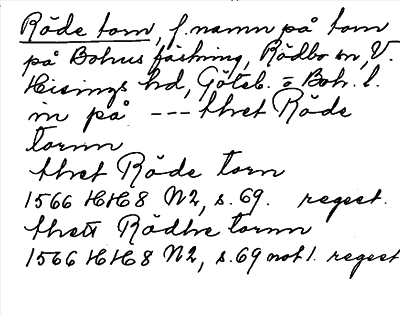 Röde torn, f. namn på torn
på Bohus fästning, Rödbo sn, V.
Hisings hd, Göteb. o Boh. l.
in på --- thet Röde
tornn
thet Röde torn
1566 HH8 N2, s. 69. regest.
thett Rödhe tornn
1566 HH8 N2, s. 69 not 1. regest